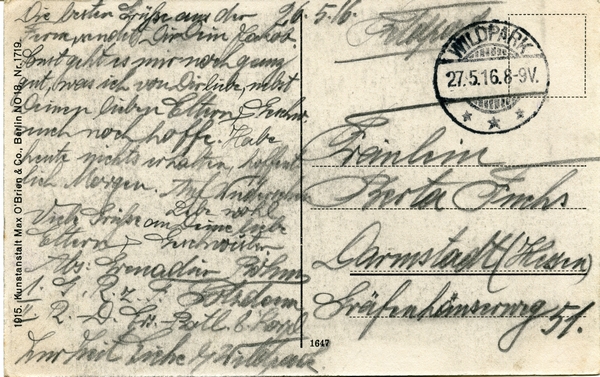 Die besten Grüße aus der 26.5.16.
sendet Dir Dein Jakob.
Sonst geht es mir noch ganz
gut, was ich von Dir Liebe, nebst
Deinen lieben Eltern & Geschw.
auch noch hoffe. Habe
heute nichts erhalten, hoffent
lich Morgen. Auf Wiedersehn
Lebe wohl
Viele Grüße an Deine liebe
Eltern & Geschwister
Abs: Grenadier Böhm
1. G. R. z. F. Potsdam
Feldpost
WILDPARK
27.5.16.8-9V.
Fräulein
Berta Fuchs
Darmstadt (Hessen)
Gräfenhäuserweg
51.
1647
1915. Kunstanstalt Max O'Brien & Co., Berlin NO 18. Nr. 1719.